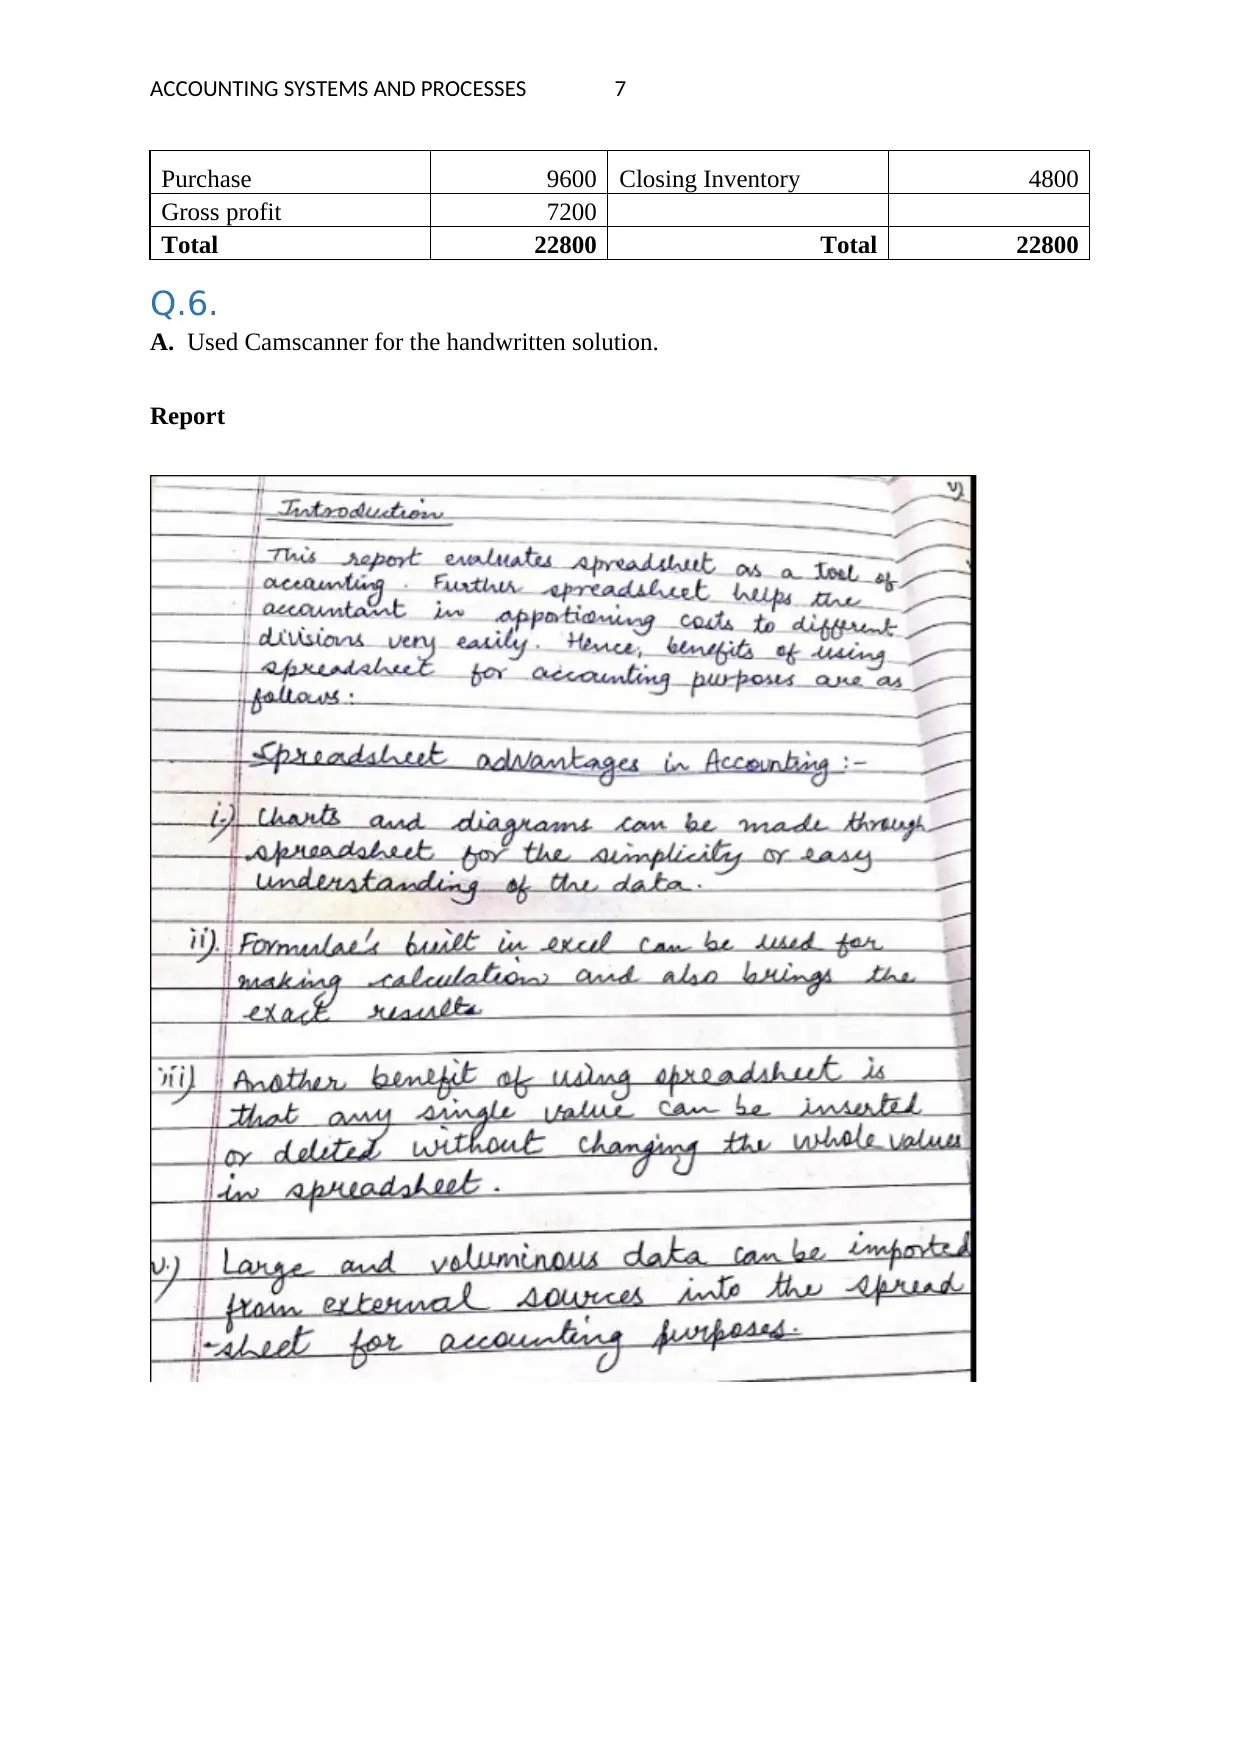 ACCOUNTING SYSTEMS AND PROCESSES 7
Purchase 9600 Closing Inventory 4800
Gross profit 7200
Total 22800 Total 22800
Q.6.
A. Used Camscanner for the handwritten solution.
Report
v)
Introduction
This report evaluates spreadsheet as a tool of
accounting. Further spreadsheet helps the
accountant in apportioning costs to different
divisions very easily. Hence, benefits of using
spreadsheet for accounting purposes are as
follows:
Spreadsheet advantages in Accounting :-
i.) Charts and diagrams can be made through
spreadsheet for the simplicity or easy
understanding of the data.
ii). Formulae's built in excel can be used for
making calculation and also brings the
exact results
iii) Another benefit of using spreadsheet is
that any single value can be inserted
or deleted without changing the whole values
in spreadsheet.
v.) Large and voluminous data can be imported
from external sources into the spread
-sheet for accounting purposes.